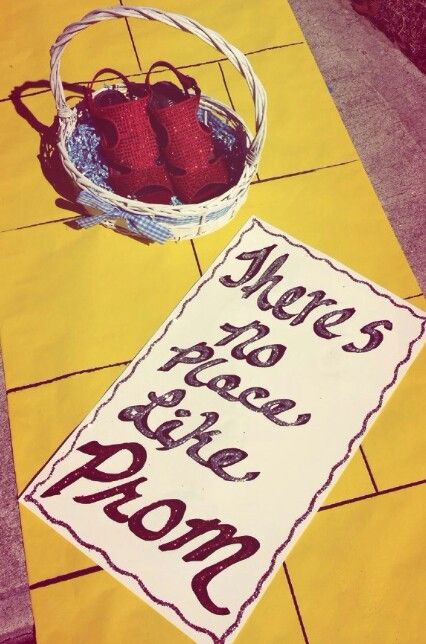 Theres
no
place
Like
Prom